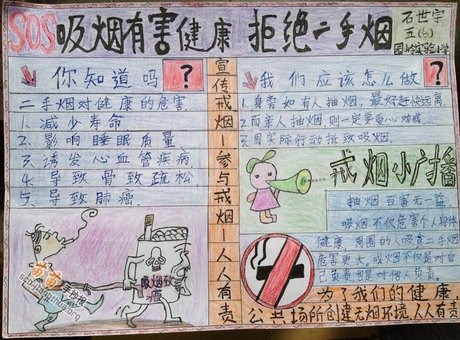 SOS吸烟有害健康 拒绝二手烟
石世宇
五(6)
园岭实验小学
你知道吗?
二手烟对健康的危害
1.减少寿命
2.影响睡眠质量
3.诱发心血管疾病
4.导致骨致疏松
5.导致肺癌
吸烟致癌
宣传戒烟-参与戒烟-人人有责
我们应该怎么做?
1.身旁如有人抽烟,最好赶快远离
2.而亲人抽烟则一定要耐心劝戒
3.用实际行动抵致吸烟.
戒烟小广播
抽烟百害无一益
吸烟不仅危害个人身体
健康 周围的人吸食二手烟
危害更大,戒烟不仅是对自
己负责也是对他人负责.
为了我们的健康
公共场所创建无烟环境人人有责